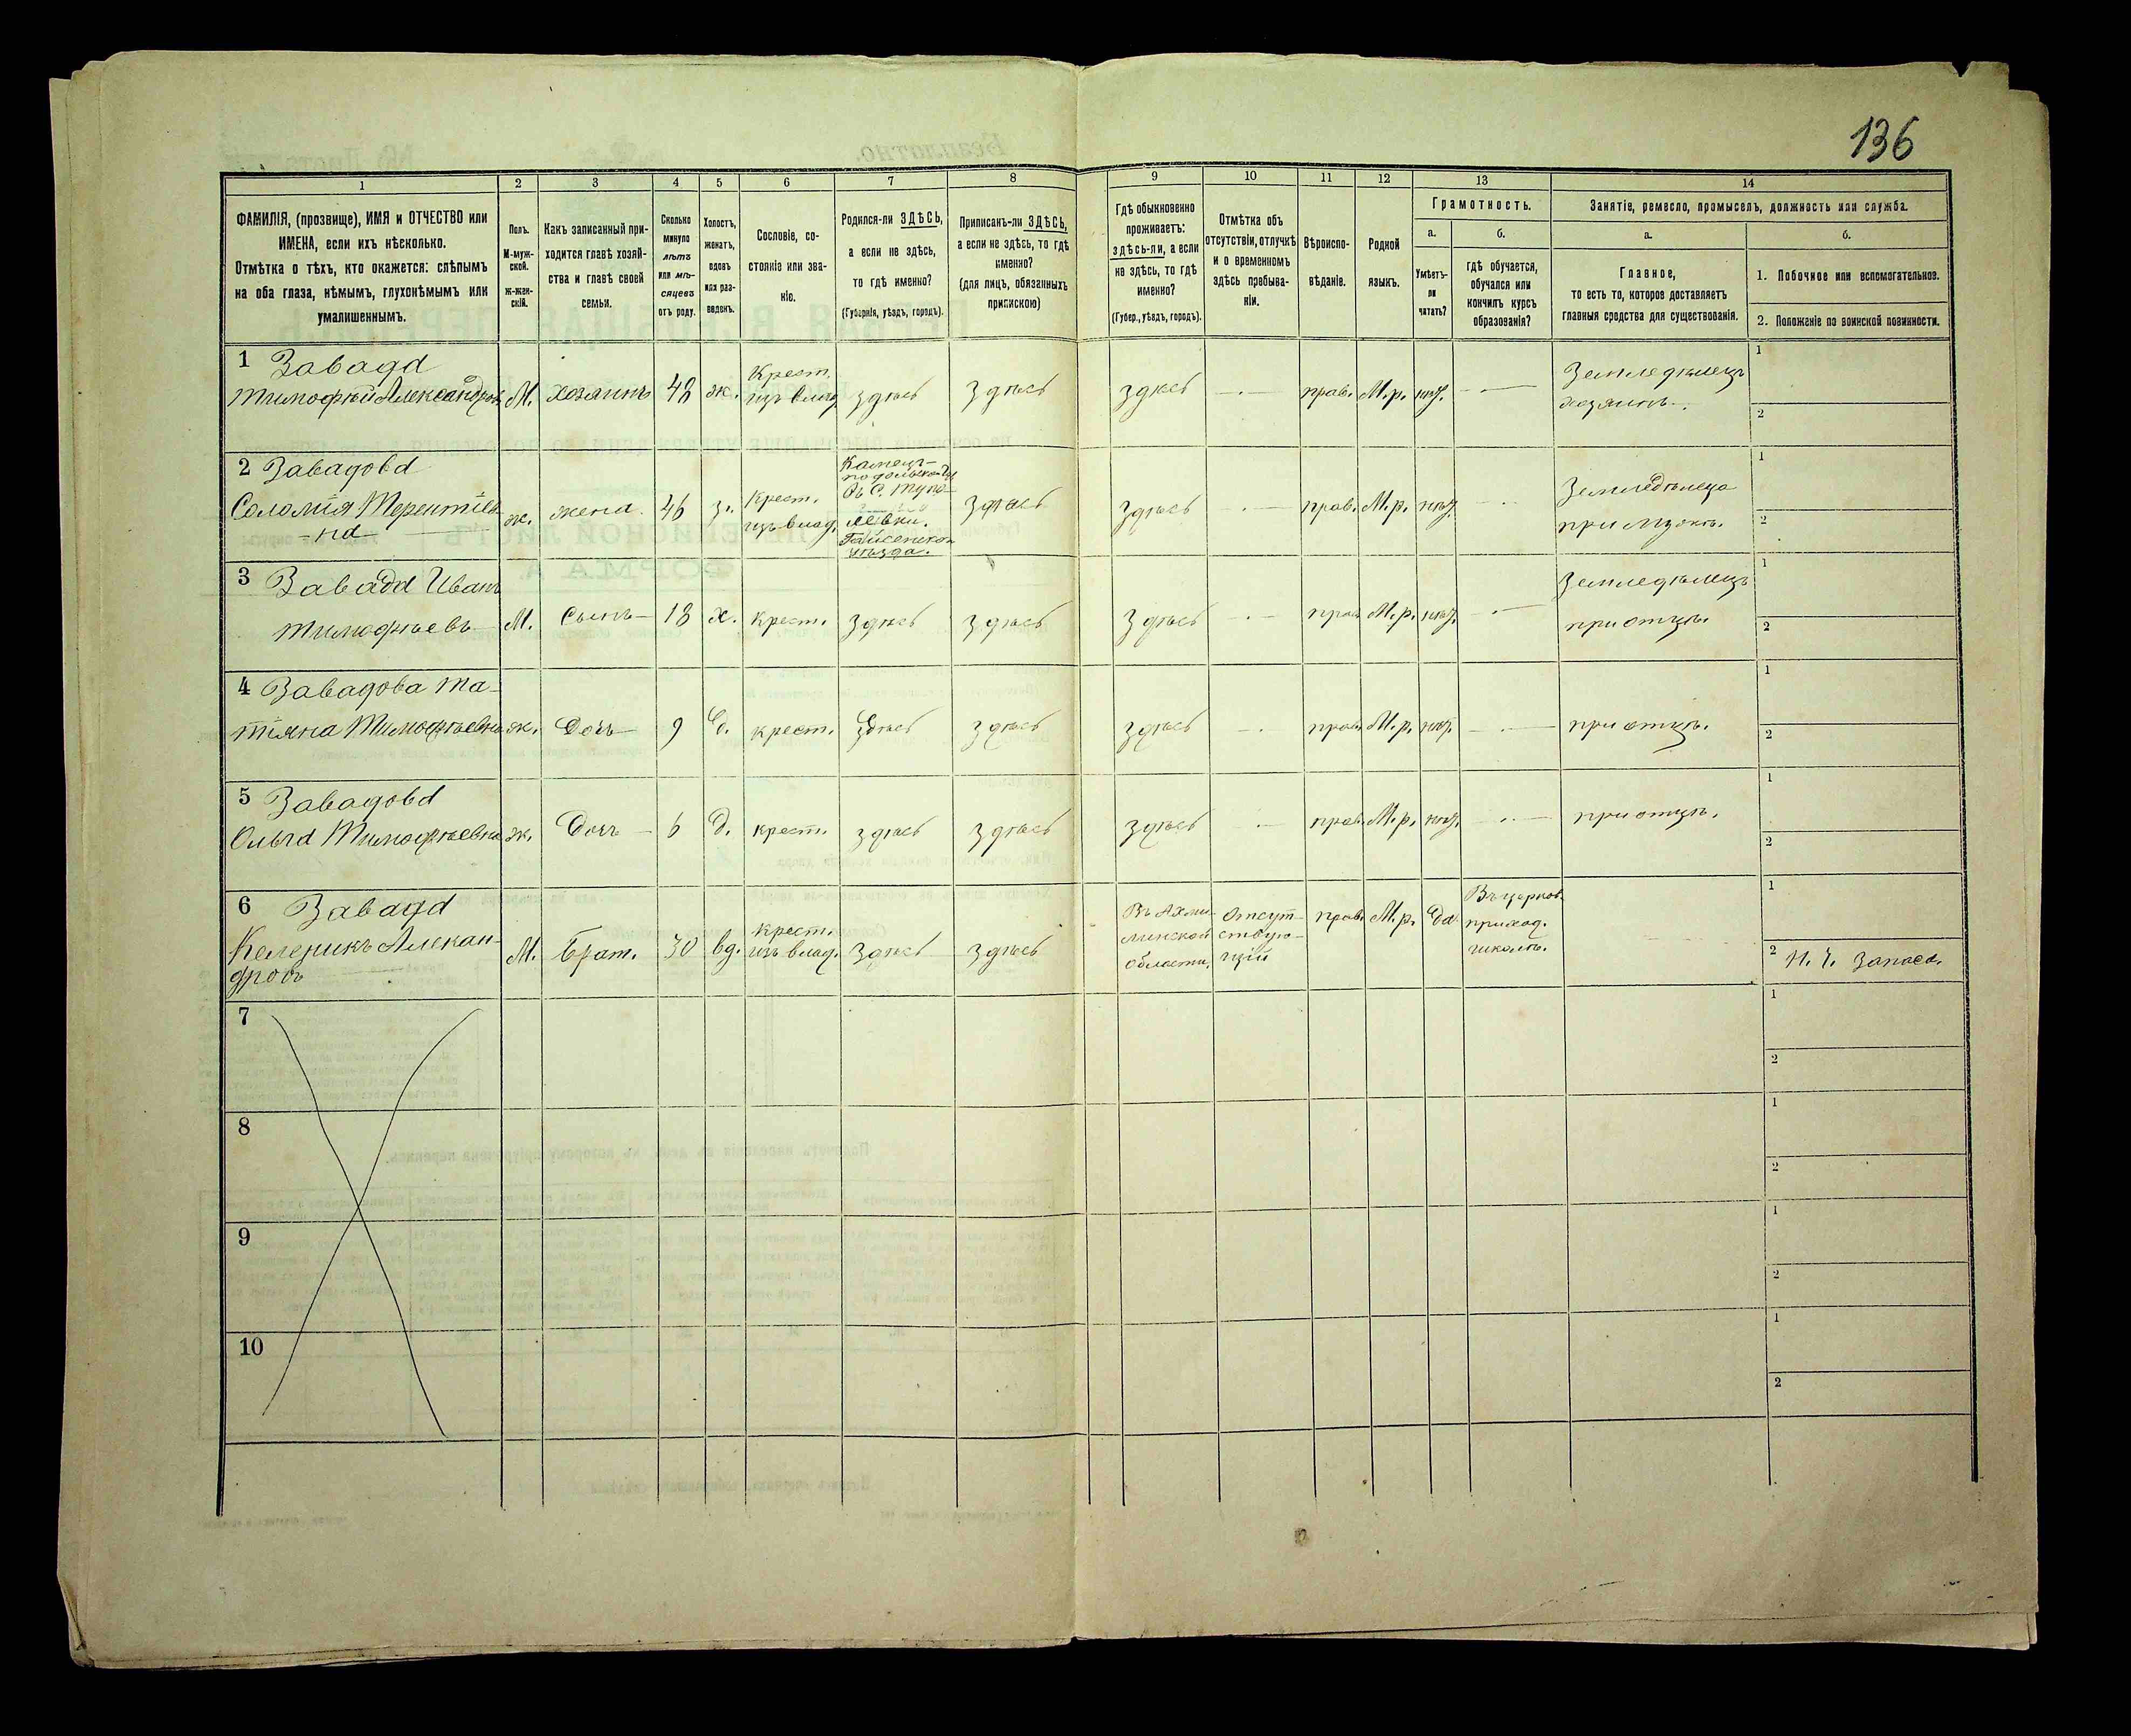 136
1 2 3 4 5 6 7 8 9 10 11 12 13 14
ФАМИЛІЯ, (прозвище), ИМЯ и ОТЧЕСТВО или
ИМЕНА, если ихъ нѣсколько.
Отмѣтка о тѣхъ, кто окажется: слѣпымъ
на оба глаза, нѣмымъ, глухонѣмымъ или
умалишеннымъ.
Полъ.
М-муж-
ской.
Ж-жен-
скій.
Какъ записанный при-
ходится главѣ хозяй-
ства и главѣ своей
семьи.
Сколько
минуло
лѣтъ
или мѣ-
сяцевъ
отъ роду.
Холостъ,
женатъ,
вдовъ
или раз-
веденъ.
Сословіе, со-
стояніе или зва-
ніе.
Родился-ли ЗДѢСЬ,
а если не здѣсь,
то гдѣ именно?
(Губернія, уѣздъ, городъ).
Приписанъ-ли ЗДѢСЬ,
а если не здѣсь, то гдѣ
именно?
(для лицъ, обязанныхъ
припискою)
Гдѣ обыкновенно
проживаетъ:
здѣсь-ли, а если
не здѣсь, то гдѣ
именно?
(Губер., уѣздъ, городъ).
Отмѣтка объ
отсутствіи, отлучкѣ
и о временномъ
здѣсь пребыва-
ніи.
Вѣроиспо-
вѣданіе.
Родной
языкъ.
Грамотность.
а.
Умѣетъ-
ли
читать?
б.
гдѣ обучается,
обучался или
кончилъ курсъ
образованія?
Занятіе, ремесло, промыселъ, должность или служба.
а.
Главное,
то есть то, которое доставляетъ
главныя средства для существованія.
б.
1. Побочное или вспомогательное.
2. Положеніе по воинской повинности.
1 Завада
Тимофѣй Александров
М. хозяинъ 48 ж.
Крест.
изъ влад.
здѣсь здѣсь здѣсь — прав. М.р. нѣт. —
Земледѣлецъ
хозяинъ.
1
2
2 Завадова
Соломія Терентіев
-на
ж. жена 46 з.
Крест.
изъ влад.
Каменц-
подольской Гу
Въ С. Тупо-
левки.
Гайсенскои
уѣзда.
здѣсь здѣсь — прав. М.р. нѣт. —
Земледѣлеца
при мужѣ.
1
2
3 Завада Иванъ
Тимофѣевъ
М. Сынъ 18 х. крест. здѣсь здѣсь здѣсь — прав. М.р. нѣт. —
Земледѣлецъ
при отцѣ.
1
2
4 Завадова Та-
тіяна Тимофѣевна
ж. Дочь 9 д. крест. здѣсь здѣсь здѣсь — прав. М.р. нѣт. — при отцѣ.
1
2
5 Завадова
Ольга Тимофѣевна
ж. Дочь 6 д. крест. здѣсь здѣсь здѣсь — прав. М.р. нѣт. — при отцѣ.
1
2
6 Завада
Келеникъ Алексан-
дровъ
М. Брат. 30 вд.
крест.
изъ влад.
здѣсь здѣсь
Въ Акмо-
линской
области.
Отсут-
ствую-
щій
прав. М.р. да
Въ церков.
приход.
школѣ.
1
2 Н. Ч. Запаса.
7
1
2
8
1
2
9
1
2
10
1
2